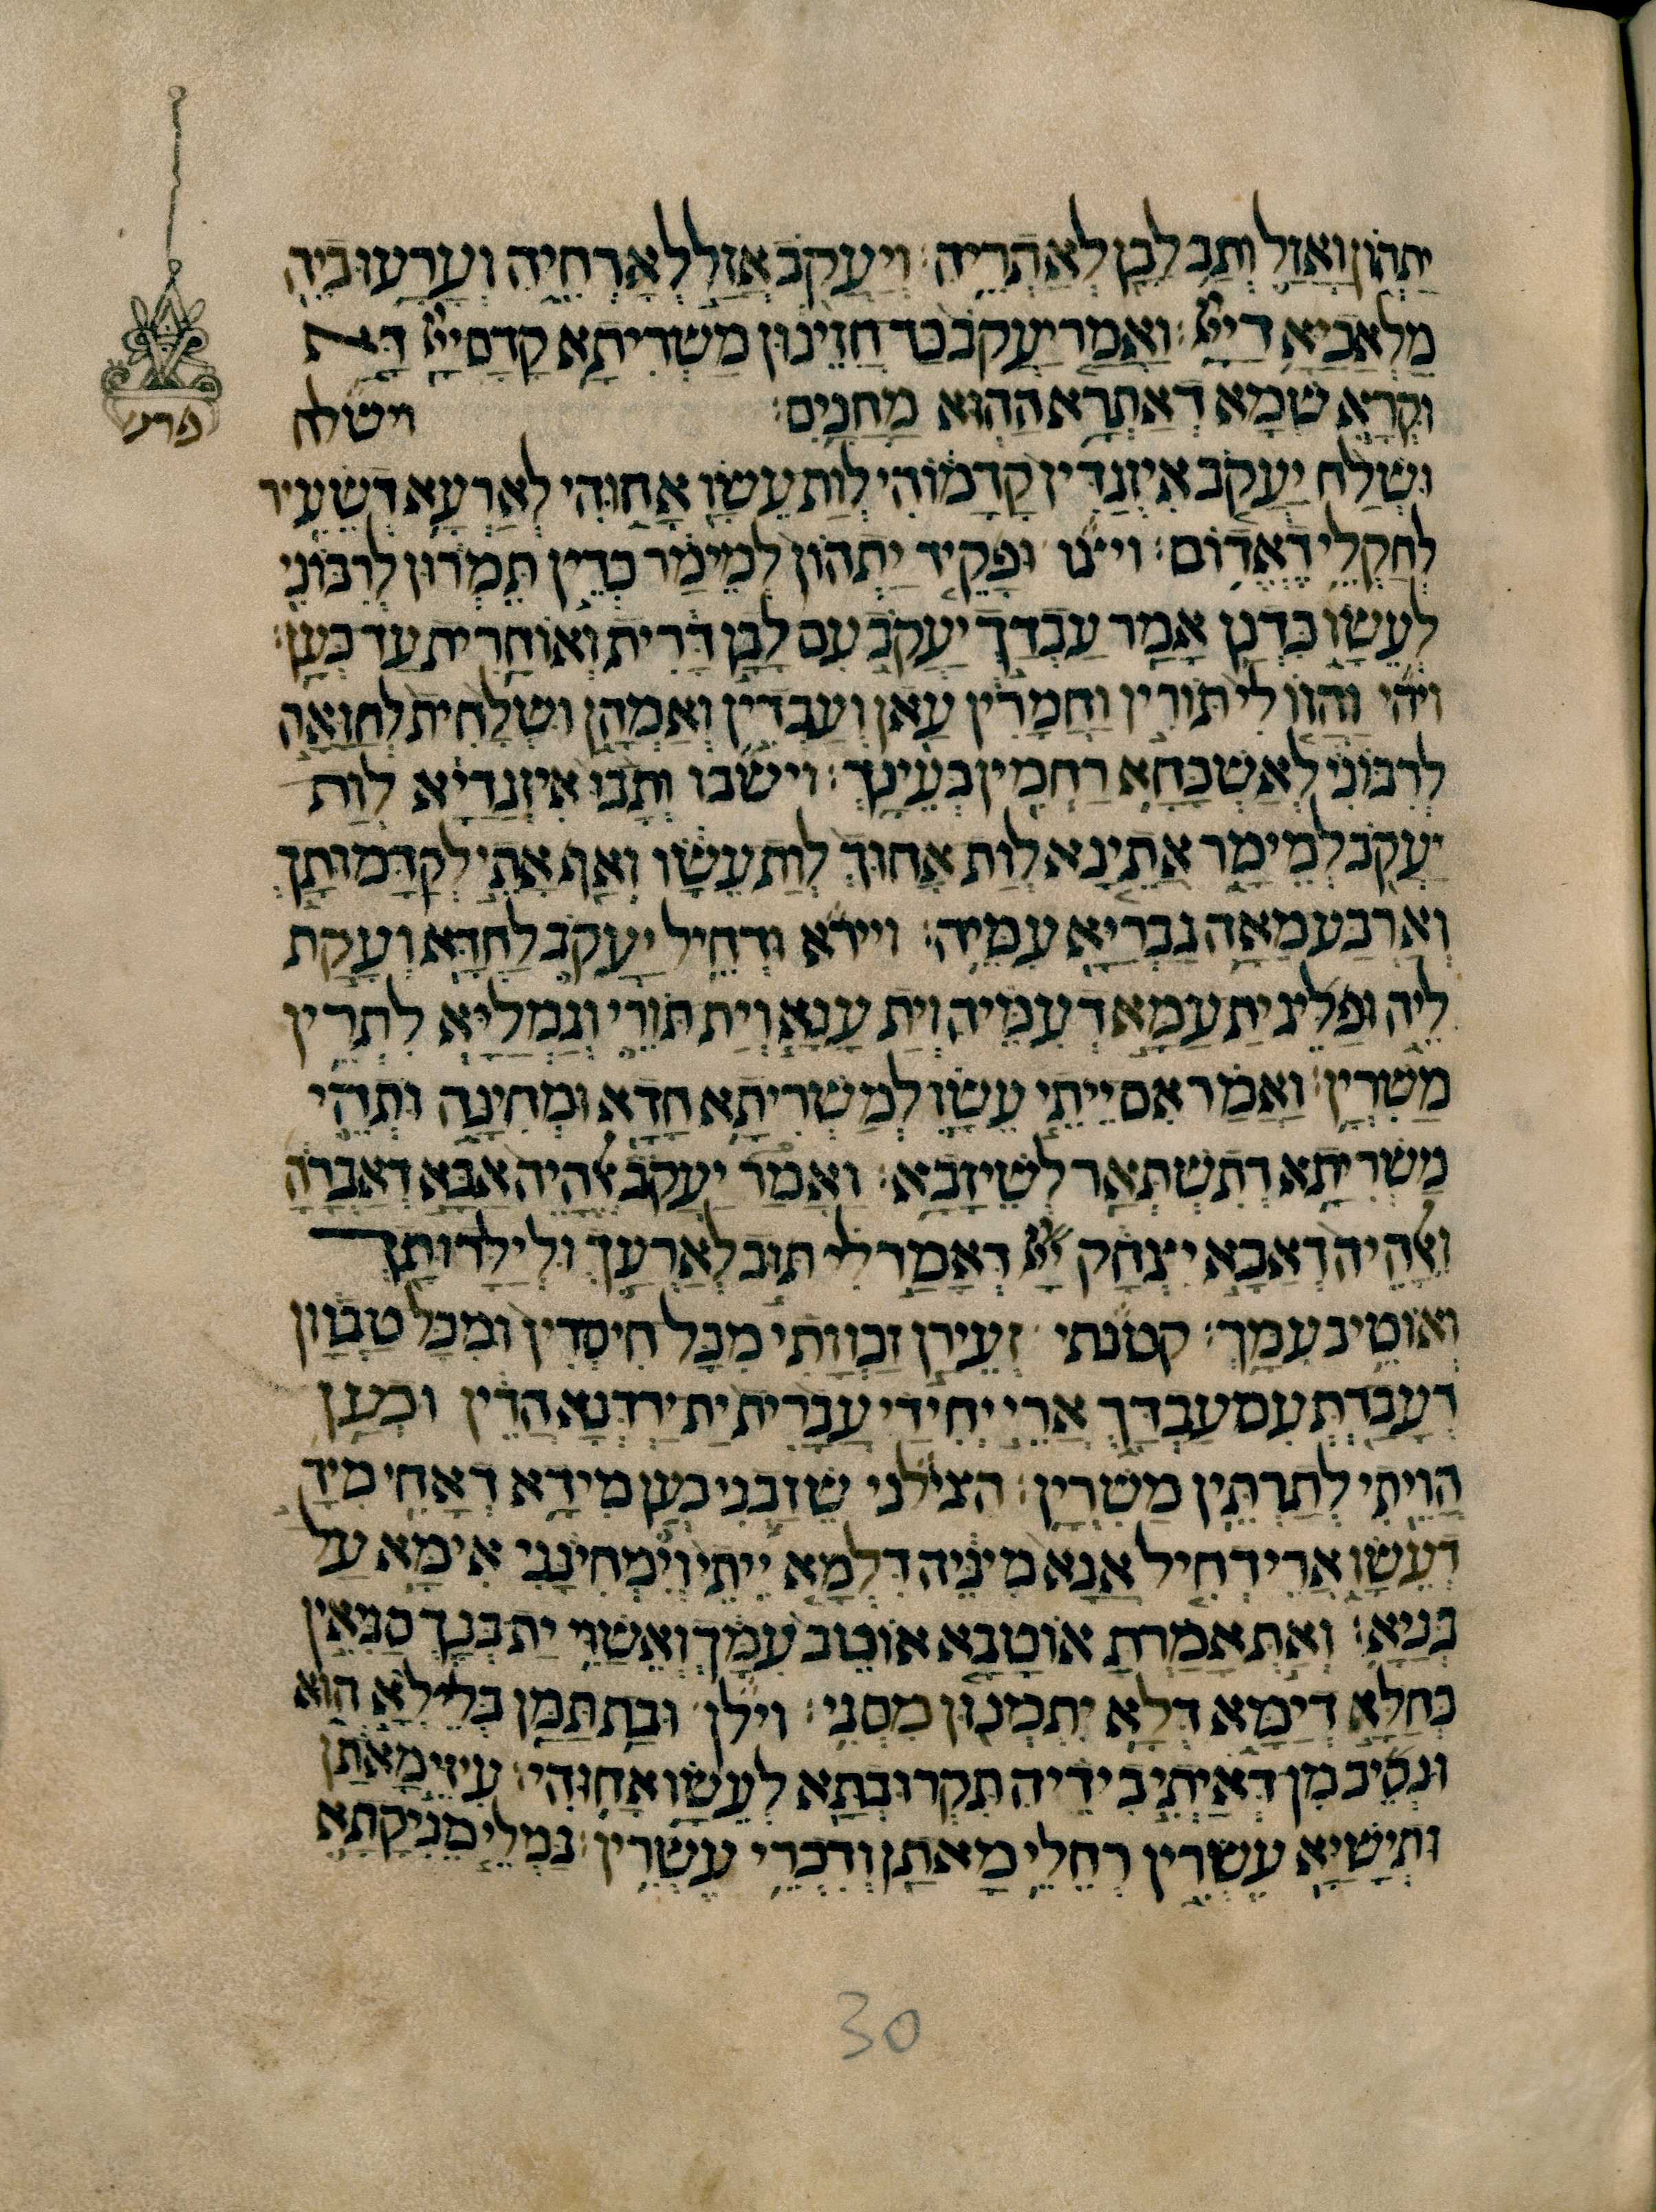 יַתְהוֹן וַאֲזַל וְתָב לָבָן לְאַתְרֵיהּ׃ וְיַעֲקֹב אֲזַל לְאָרְחֵיהּ וְעָרְעוּ בֵיהּ
מַלְאֲכַיָא דַייָ׃ וַאֲמַר יַעֲקֹב כַּד חֲזֵינוּן מַשְׁרִיתָא קֳדָם יְיָ דָּא
וּקְרָא שְׁמָא דְאַתְרָא הַהוּא מַחֲנָיִם׃ וישלח
פרש
וּשְׁלַח יַעֲקֹב אִיזְגַדִּין קֳדָמוֹהִי לְוָת עֵשָׂו אֲחוּהִי לְאַרְעָא דְשֵׂעִיר
לְחַקְלֵי דֶאֱדוֹם׃ ויצו וּפַקֵיד יַתְהוֹן לְמֵימַר כְּדֵין תֵּמְרוּן לְרִבּוֹנִי
לְעֵשָׂו כִּדְנַן אֲמַר עַבְדָךְ יַעֲקֹב עִם לָבָן דָּרִית וְאוֹחָרִית עַד כְּעַן׃
ויהי וַהֲווֹ לִי תּוֹרִין וַחֲמָרִין עָאן וְעַבְדִין וְאַמְהָן וּשְׁלָחִית לְחַוָּאָה
לְרִבּוֹנִי לְאַשְׁכָּחָא רַחְמִין בְּעֵינָךְ׃ וישבו וְתָבוּ אִיזְגַדַּיָא לְוָת
יַעֲקֹב לְמֵימַר אֲתֵינָא לְוָת אֲחוּךְ לְוָת עֵשָׂו וְאַף אָתֵי לְקַדָּמוּתָךְ
וְאַרְבַּע מְאָה גַבְרַיָא עִמֵּיהּ׃ ויירא וּדְחֵיל יַעֲקֹב לַחְדָּא וְעָקַת
לֵיהּ וּפַלֵּיג יַת עַמָּא דְעִמֵּיהּ וְיַת עָנָא וְיַת תּוֹרֵי וְגַמְלַיָא לִתְרֵין
מַשִׁרְיָן׃ וַאֲמַר אִם יֵיתֵי עֵשָׂו לְמַשְׁרִיתָא חֲדָא וְיִמְחִינַהּ וּתְהֵי
מַשְׁרִיתָא דְתִשְׁתָּאַר לְשֵׁיזָבָא׃ וַאֲמַר יַעֲקֹב אֱלָהֵיהּ דְאַבָּא אַבְרָהָם
וֵאלָהֵיהּ דְאַבָּא יִצְחָק יְיָ דַּאֲמַר לִי תּוּב לְאַרְעָךְ וּלְיַלָּדוּתָךְ
וְאוֹטֵיב עִמָּךְ׃ קטנתי זְעֵירָן זָכְוָתִי מִכָּל חִיסְדִּין וּמִכָּל טָבְוָן
דַּעֲבַדְתְּ עִם עַבְדָּךְ אֲרֵי יְחִידַי עֲבָרִית יַת יַרְדְּנָא הָדֵין וּכְעַן
הֲוֵיתִי לְתַרְתֵּין מַשִׁרְיָן׃ הצילני שֵׁזֵבְנִי כְּעַן מִידָא דְאָחִי מִידָא
דְעֵשָׂו אֲרֵי דָחִיל אֲנָא מִינֵּיהּ דִּלְמָא יֵיתֵי וְיִמְחִינַנִי אִימָּא עַל
בְּנַיָא׃ וְאַתְּ אֲמַרְתְּ אוֹטָבָא אוֹטֵב עִמָּךְ וַאֲשַׁוֵּי יַת בְּנָךְ סַגִּיאִין
כְּחָלָא דְיַמָּא דְּלָא יִתְמְנוּן מִסְגֵי׃ וילן וּבָת תַּמָּן בְּלֵילְיָא הוּא
וּנְסֵיב מִן דְּאַיְתִי בִּידֵיהּ תִּקְרוּבְתָא לְעֵשָׂו אֲחוּהִי׃ עִיזֵּי מָאתָן
וּתְיָשַׁיָא עֶשְׂרִין רַחְלֵי מָאתָן וְדִכְרֵי עֶשְׂרִין׃ גַּמְלֵי מֵינִיקָתָא
30